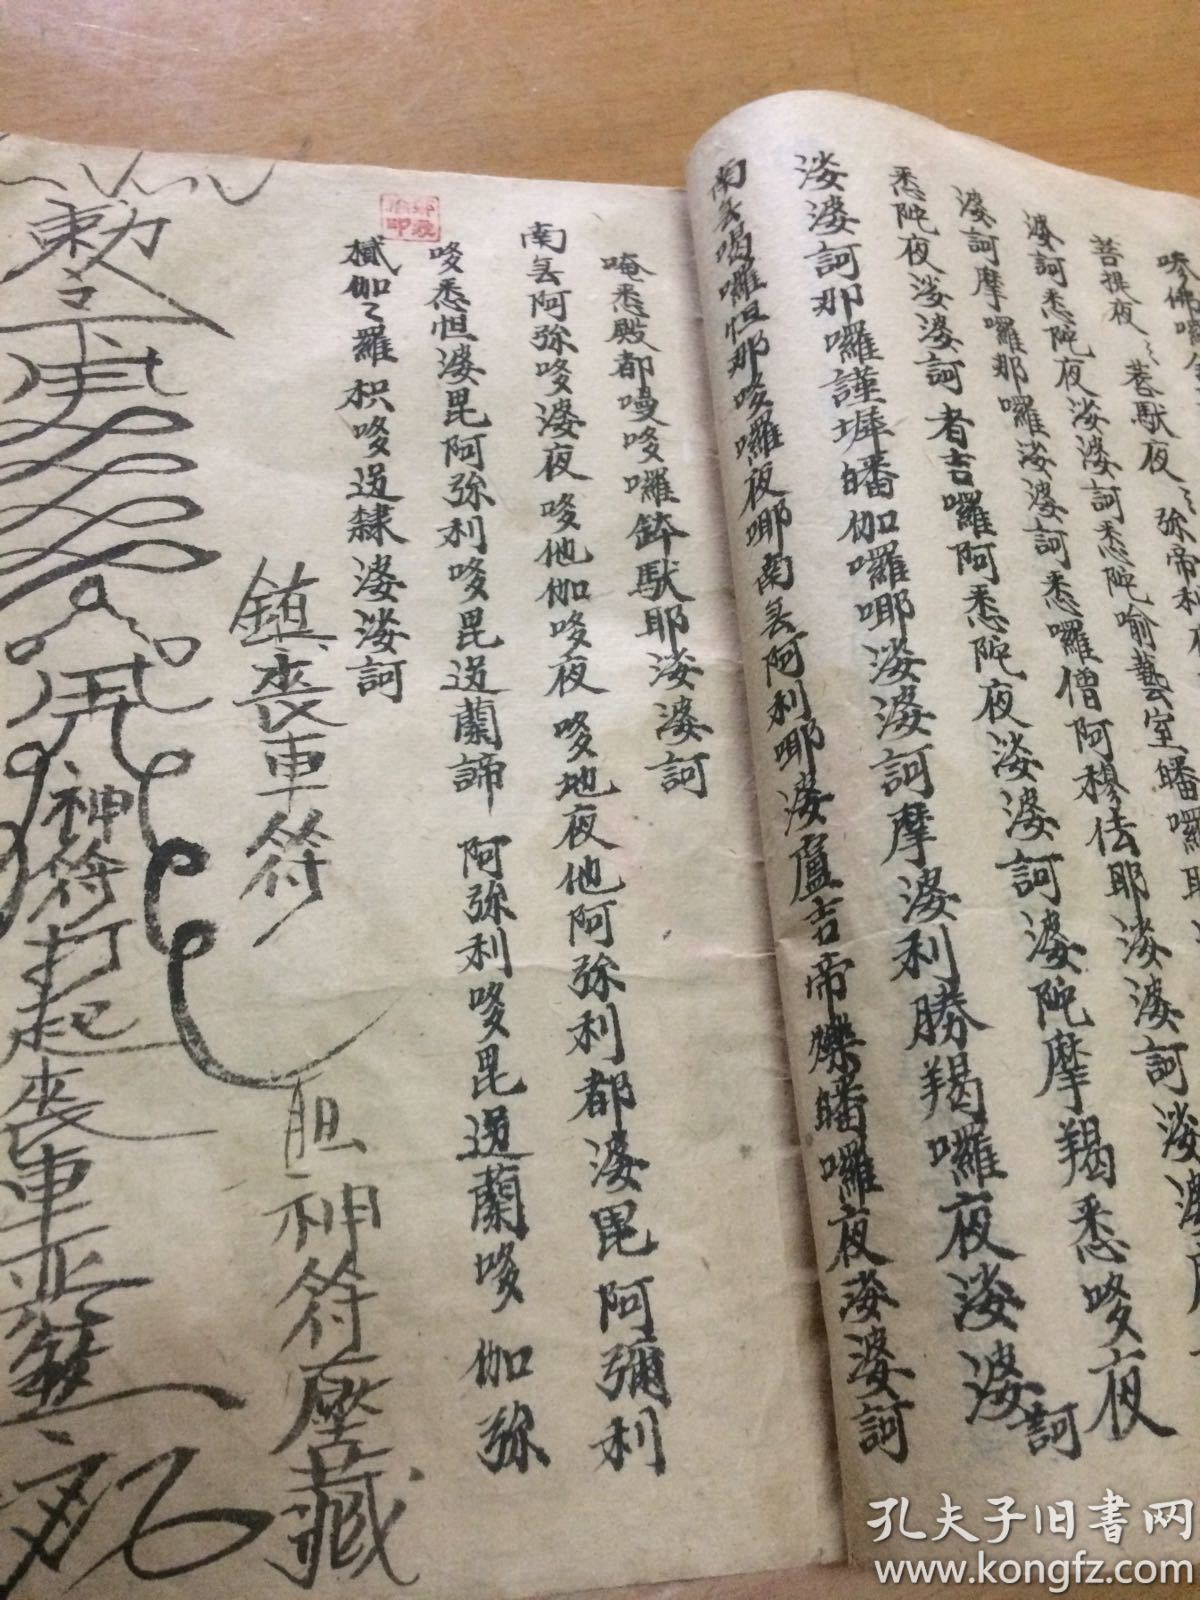 菩提夜〻菩馱夜〻弥帝利夜
婆訶悉陀夜娑婆訶悉陀喻藝室皤囉耶
婆訶摩囉那囉娑婆訶悉囉僧阿穆佉耶娑婆訶娑婆
悉陀夜娑婆訶者吉囉阿悉陀夜娑婆訶婆陀摩羯悉哆夜
娑婆訶那囉謹墀皤伽囉哪娑婆訶摩婆利勝羯囉夜娑婆訶
南無喝囉怛那哆囉夜哪南無阿利哪婆盧吉帝爍皤囉夜娑婆訶
唵悉殿都嗼哆囉鉢馱耶娑婆訶
南無阿弥哆婆夜哆他伽哆夜哆地夜他阿弥利都婆毘阿彌利
哆悉怛婆毘阿弥利哆毘迦蘭諦阿弥利哆毘迦蘭哆伽弥
膩伽〻羅枳哆迦隸婆娑訶
鎮喪車符
神符壓藏
勅令
神符打起喪車
孔夫子旧书网
www.kongfz.com